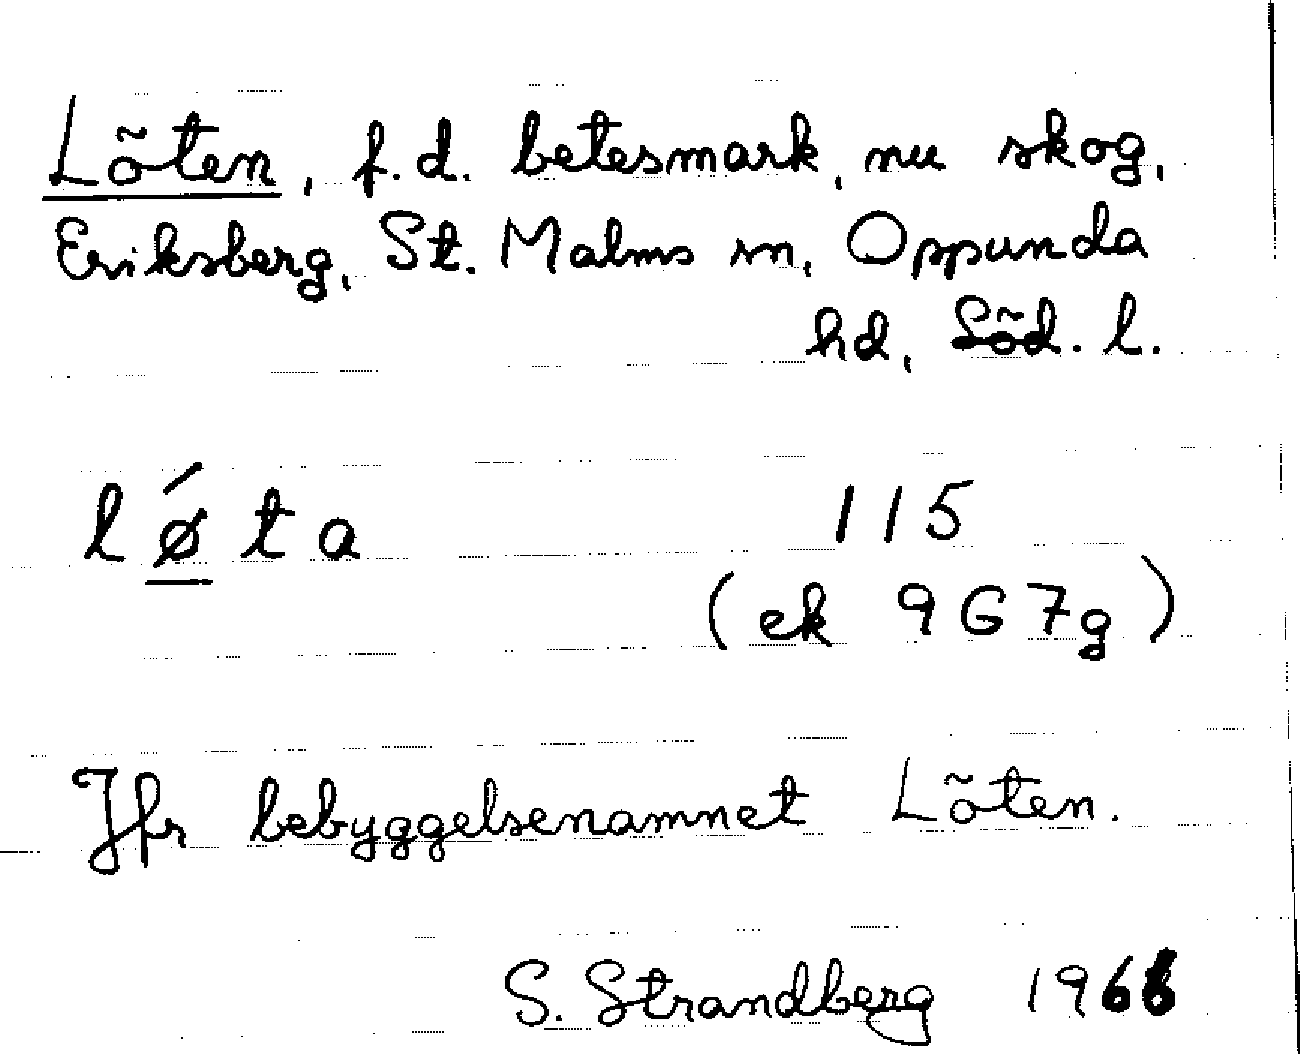 Löten, f.d. betesmark, nu skog,
Eriksberg, St. Malms sn, Oppunda
hd, Söd. l.
lǿta 115
(ek 9G7g)
Jfr bebyggelsenamnet Löten.
S. Strandberg 1966